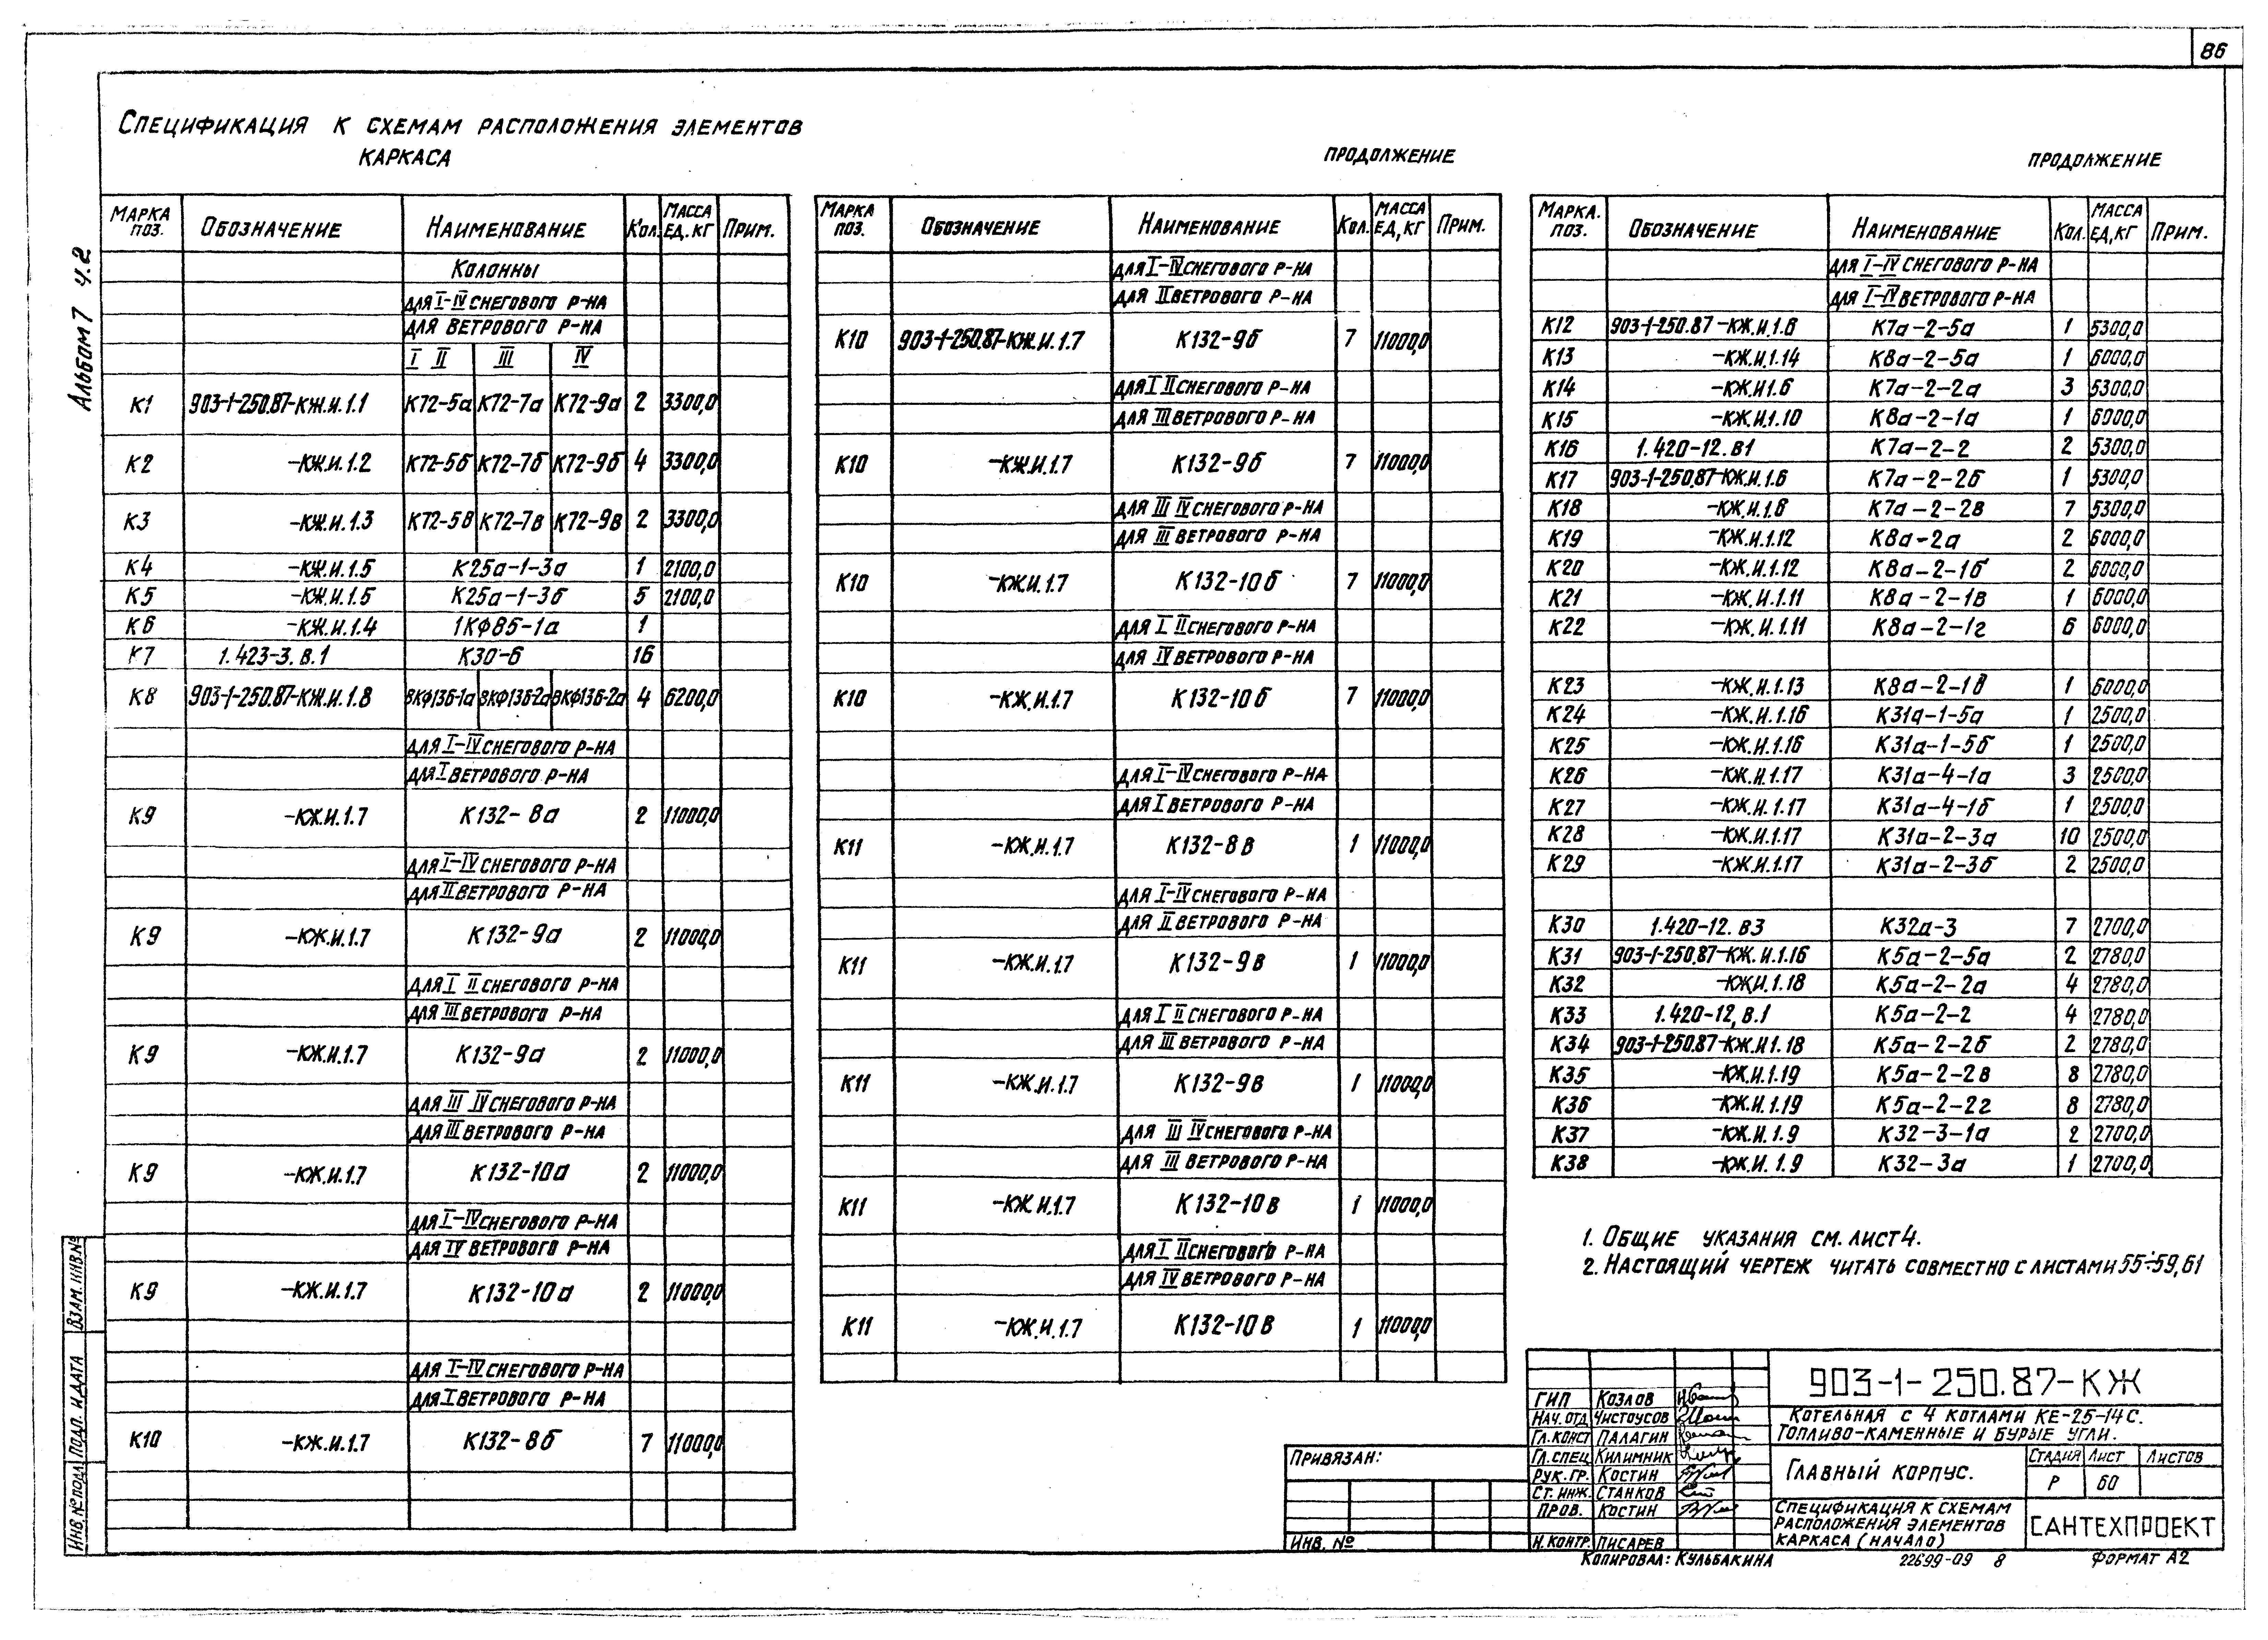 86
Альбом 7 ч.2
Спецификация к схемам расположения элементов
каркаса
Марка поз. Обозначение Наименование Кол. Масса ед. кг Прим.
Колонны
для I-IV снегового р-на
для ветрового р-на
I II III IV
К1 903-1-250.87-КЖ.И.1.1 К72-5а К72-7а К72-9а 2 3300,0
К2 -КЖ.И.1.2 К72-5б К72-7б К72-9б 4 3300,0
К3 -КЖ.И.1.3 К72-5в К72-7в К72-9в 2 3300,0
К4 -КЖ.И.1.5 К25а-1-3а 1 2100,0
К5 -КЖ.И.1.5 К25а-1-3б 5 2100,0
К6 -КЖ.И.1.4 1КФ85-1а 1
К7 1.423-3.в.1 К30-6 16
К8 903-1-250.87-КЖ.И.1.8 8КФ136-1а 8КФ136-2а 8КФ136-2а 4 6200,0
для I-IV снегового р-на
для I ветрового р-на
К9 -КЖ.И.1.7 К132-8а 2 11000,0
для I-IV снегового р-на
для II ветрового р-на
К9 -КЖ.И.1.7 К132-9а 2 11000,0
для I II снегового р-на
для III ветрового р-на
К9 -КЖ.И.1.7 К132-9а 2 11000,0
для III IV снегового р-на
для III ветрового р-на
К9 -КЖ.И.1.7 К132-10а 2 11000,0
для I-IV снегового р-на
для IV ветрового р-на
К9 -КЖ.И.1.7 К132-10а 2 11000,0
для I-IV снегового р-на
для I ветрового р-на
К10 -КЖ.И.1.7 К132-8б 7 11000,0
продолжение
Марка поз. Обозначение Наименование Кол. Масса ед, кг Прим.
для I-IV снегового р-на
для II ветрового р-на
К10 903-1-250.87-КЖ.И.1.7 К132-9б 7 11000,0
для I II снегового р-на
для III ветрового р-на
К10 -КЖ.И.1.7 К132-9б 7 11000,0
для III IV снегового р-на
для III ветрового р-на
К10 -КЖ.И.1.7 К132-10б 7 11000,0
для I II снегового р-на
для IV ветрового р-на
К10 -КЖ.И.1.7 К132-10б 7 11000,0
для I-IV снегового р-на
для I ветрового р-на
К11 -КЖ.И.1.7 К132-8в 1 11000,0
для I-IV снегового р-на
для II ветрового р-на
К11 -КЖ.И.1.7 К132-9в 1 11000,0
для I II снегового р-на
для III ветрового р-на
К11 -КЖ.И.1.7 К132-9в 1 11000,0
для III IV снегового р-на
для III ветрового р-на
К11 -КЖ.И.1.7 К132-10в 1 11000,0
для I II снегового р-на
для IV ветрового р-на
К11 -КЖ.И.1.7 К132-10в 1 11000,0
продолжение
Марка. поз. Обозначение Наименование Кол. Масса ед, кг Прим.
для I-IV снегового р-на
для I-IV ветрового р-на
К12 903-1-250.87-КЖ.И.1.6 К7а-2-5а 1 5300,0
К13 -КЖ.И.1.14 К8а-2-5а 1 6000,0
К14 -КЖ.И1.6 К7а-2-2а 3 5300,0
К15 -КЖ.И.1.10 К8а-2-1а 1 6000,0
К16 1.420-12.в1 К7а-2-2 2 5300,0
К17 903-1-250.87-КЖ.И.1.6 К7а-2-2б 1 5300,0
К18 -КЖ.И.1.6 К7а-2-2в 7 5300,0
К19 -КЖ.И.1.12 К8а-2а 2 6000,0
К20 -КЖ.И.1.12 К8а-2-1б 2 6000,0
К21 -КЖ.И.1.11 К8а-2-1в 1 6000,0
К22 -КЖ.И.1.11 К8а-2-1г 6 6000,0
К23 -КЖ.И.1.13 К8а-2-1д 1 6000,0
К24 -КЖ.И.1.16 К31а-1-5а 1 2500,0
К25 -КЖ.И.1.16 К31а-1-5б 1 2500,0
К26 -КЖ.И.1.17 К31а-4-1а 3 2500,0
К27 -КЖ.И.1.17 К31а-4-1б 1 2500,0
К28 -КЖ.И.1.17 К31а-2-3а 10 2500,0
К29 -КЖ.И.1.17 К31а-2-3б 2 2500,0
К30 1.420-12.в3 К32а-3 7 2700,0
К31 903-1-250.87-КЖ.И.1.16 К5а-2-5а 2 2780,0
К32 -КЖИ.1.18 К5а-2-2а 4 2780,0
К33 1.420-12,в.1 К5а-2-2 4 2780,0
К34 903-1-250.87-КЖ.И1.18 К5а-2-2б 2 2780,0
К35 -КЖ.И.1.19 К5а-2-2в 8 2780,0
К36 -КЖ.И.1.19 К5а-2-2г 8 2780,0
К37 -КЖ.И.1.9 К32-3-1а 2 2700,0
К38 -КЖ.И.1.9 К32-3а 1 2700,0
1. Общие указания см. лист 4.
2. Настоящий чертеж читать совместно с листами 55÷59,61
Инв.№ подл. Подп. и дата Взам. инв.№
Привязан:
Инв. №
ГИП Козлов
Нач.отд Чистоусов
Гл.конст Палагин
Гл.спец Килимник
Рук.гр. Костин
Ст. инж. Станков
Пров. Костин
Н.контр. Писарев
903-1-250.87-КЖ
Котельная с 4 котлами КЕ-25-14С.
Топливо-каменные и бурые угли.
Главный корпус.
Стадия Лист Листов
Р 60
Спецификация к схемам
расположения элементов
каркаса (начало)
САНТЕХПРОЕКТ
Копировал: Кульбакина 22699-09 8 Формат А2